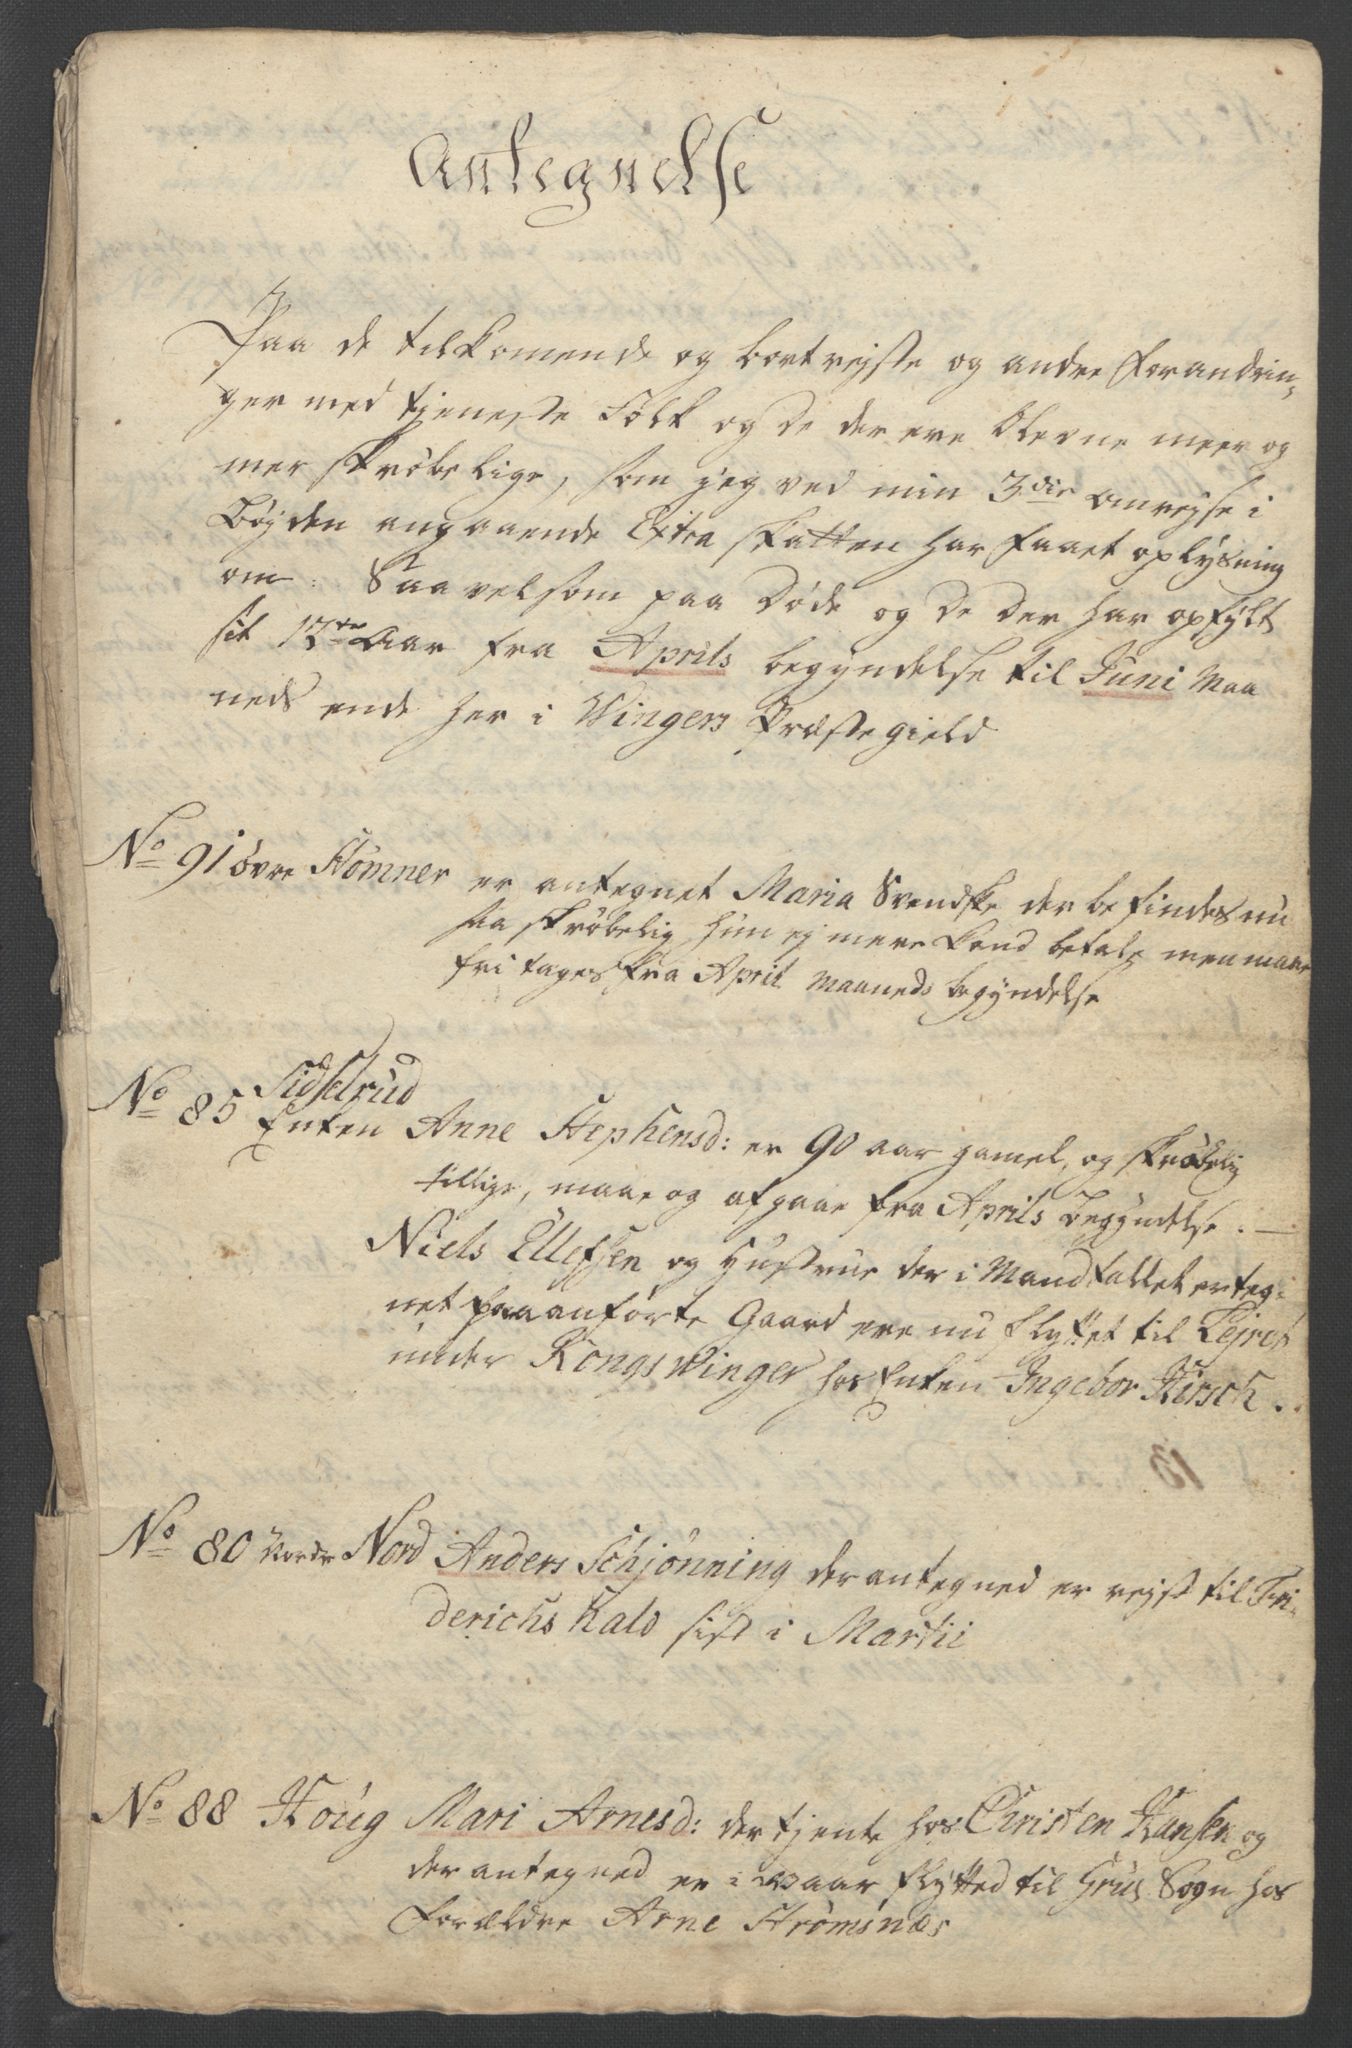 Antegnelse
Paa de tilkomende og bortrejste og andre forandrin-
ger med tjeneste Folk og de der ere blevne meer og
mer skrøbelige, som jeg ved min 3die omrejse i
Bøjden angaaende Extra skatten har faaet oplysning
om. Saavelsom paa Døde og de der har opfylt
sit 12te Aar fra Aprils begyndelse til Juni Maa
neds ende her i Wingers Præstegield
No 91 øvre Stömner er antegnet Maria Svendske der befindes nu
saa skrøbelig hun ej mere kand betale men maae
fritages fra April Maaneds begyndelse
Sidselrud
No 85 Enken Anne Stephensd: er 90 aar gamel, og skrøbelig
tillige, maae og afgaae fra Aprils begyndelse. —
Niels Ellefsen og Hustrue der i Mandtallet er teg-
net paa anførte Gaard ere nu flyttet til Lejret
under Kongswinger hos Enken Ingebor Hirsch.
13
No 80 Nordre Nord Anders Schjønning der antegned er rejst til Fri-
derichshald sist i Martii
No 88 Houg Mari Arnesd: der tjente hos Christen Hansen og
der antegned er i Vaar flytted til Grue Sogn hos
Forældre Arne Strømsnæs